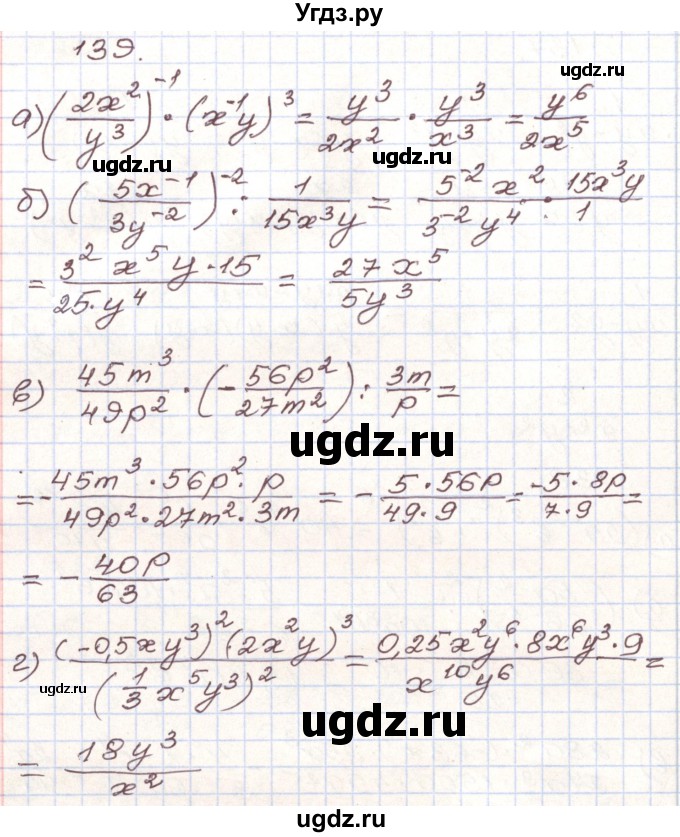 Угдз.ру
139.
а) (2x²/y³)⁻¹ · (x⁻¹y)³ = y³/2x² · y³/x³ = y⁶/2x⁵
ugdz.ru ugdz.ru
б) (5x⁻¹/3y⁻²)⁻² : 1/15x³y = 5⁻²x²/3⁻²y⁴ · 15x³y/1
= 3²x⁵y·15/25·y⁴ = 27x⁵/5y³
ugdz.ru ugdz.ru
в) 45m³/49p² · (-56p²/27m²) : 3m/p =
ugdz.ru
= -45m³·56p²·p/49p²·27m²·3m = -5·56p/49·9 = -5·8p/7·9 =
= -40p/63
г) (-0,5xy³)²(2x²y)³/(1/3x⁵y³)² = 0,25x²y⁶·8x⁶y³·9/x¹⁰y⁶ =
ugdz.ru
ugdz.ru
= 18y³/x²
ugdz.ru